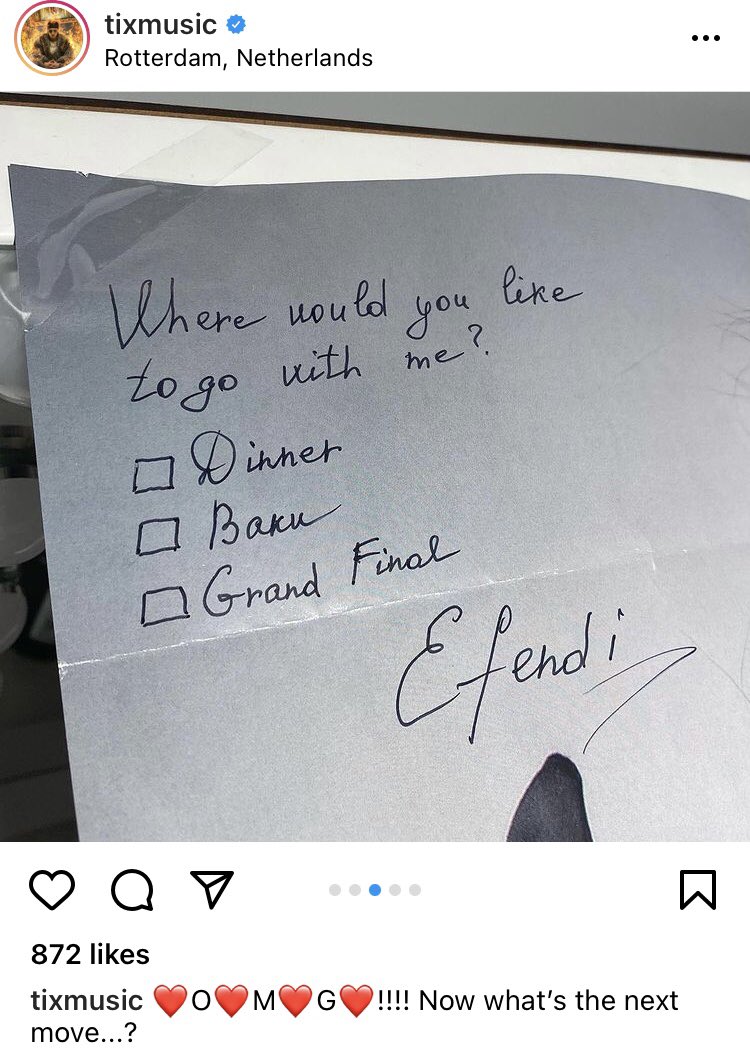 tixmusic
Rotterdam, Netherlands
Where would you like
to go with me?
Dinner
Baku
Grand Final
Efendi
872 likes
tixmusic ❤️O❤️M❤️G❤️!!!! Now what's the next
move...?